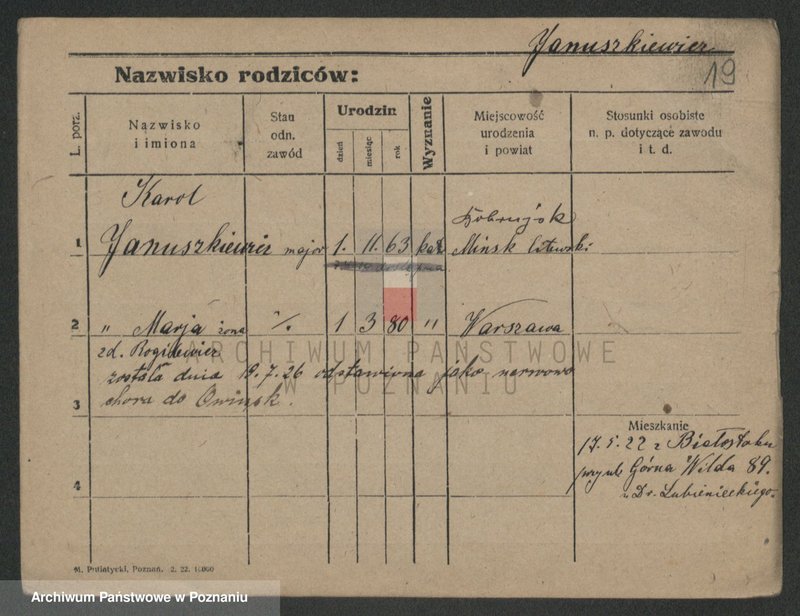 Januszkiewicz
19
Nazwisko rodziców:
L. porz.
Nazwisko
i imiona
Stan
odn.
zawód
Urodzin
dzień
miesiąc
rok
Wyznanie
Miejscowość
urodzenia
i powiat
Stosunki osobiste
n. p. dotyczące zawodu
i t. d.
Karol
1 Januszkiewicz major 1. 11. 63 kat
Mińsk litewski
2 " Marja żona ./. 1 3 80 " Warszawa
zd.
została dnia 19.7.26 odstawiona jako nerwowo
3 chora do Owińsk.
4
Mieszkanie
17.5.22 z Białostoku
przy ul. Górna Wilda 89.
u Dr. Lubienieckiego.
ARCHIWUM PAŃSTWOWE
W POZNANIU
M. Putiatycki, Poznań. 2. 22. 10000
Archiwum Państwowe w Poznaniu